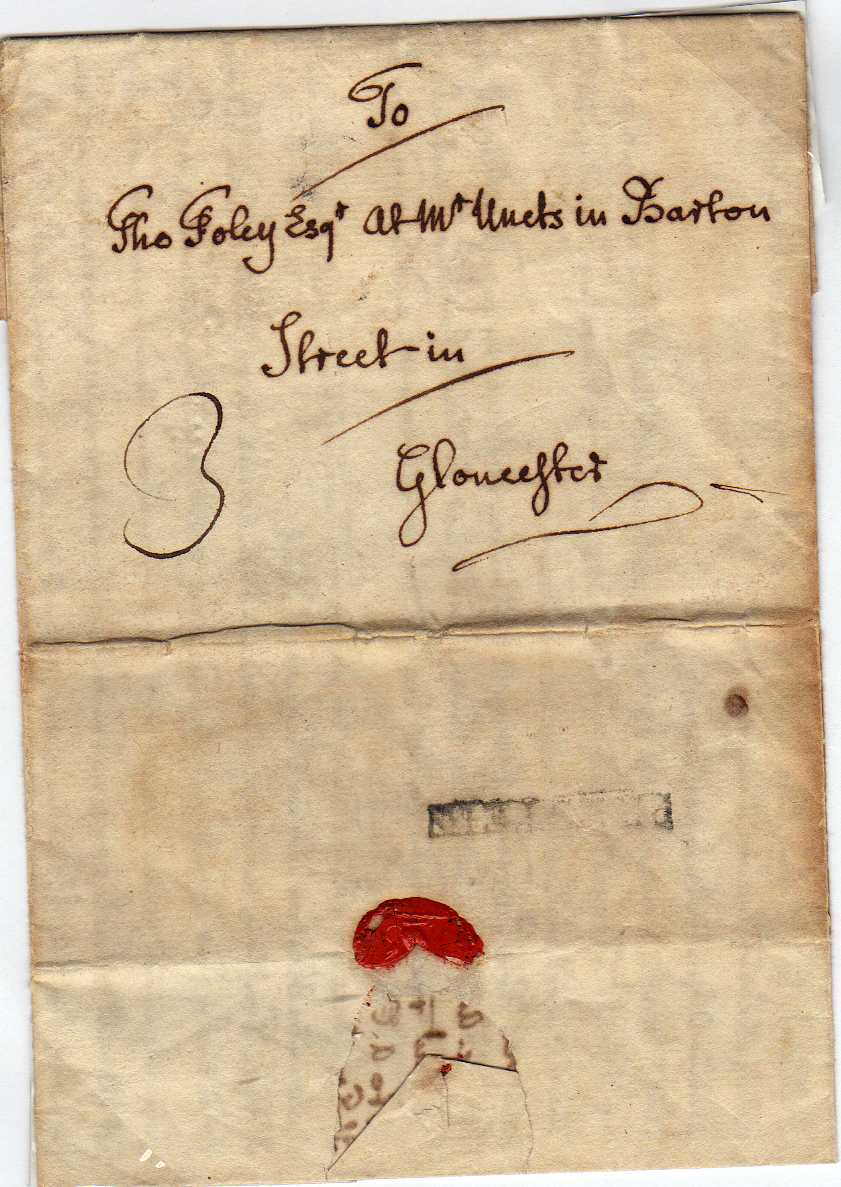 To
Tho Foley Esqr at Mr Unets in Barton
Street in
Gloucester
3